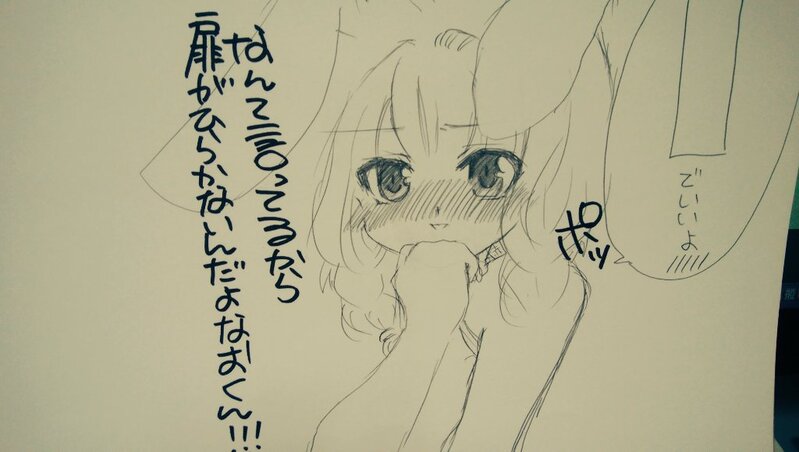 でいいよ
ポッ
なんて言ってるから
扉がひらかないんだよなおくん!!!